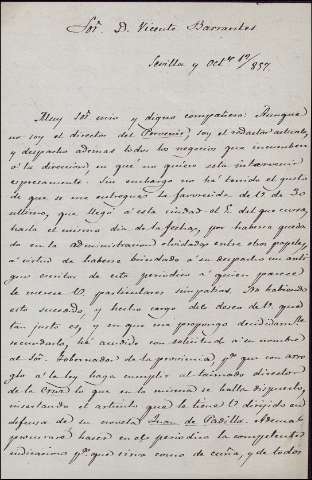 Sor. D. Vicente Barrantes
Sevilla y Octe. 10/857.
Muy Sor. mio y digno compañero: Aunque
no soy el director del Porvenir, soy el redactor
y despacho ademas todos los negocios que incumben
á la direccion, en qué no quiere esta intervenir
espresamente. Sin embargo no há tenido el gusto
de que se me entregue la favorecida de V. de 30
ultimo, que llegó á esta ciudad el del que cursa,
hasta el mismo dia de la fecha, por haberse queda-
do en la administracion olvidada entre otros papeles,
á virtud de haberse brindado á su despacho un anti-
guo escritor de este periodico á quien parece
le merece V. particulares simpatias. Ha habiendo
esto sucedido, y hecho cargo del deseo de V. que
tan justo es, y en que me propongo decididamte.
secundarle, há acudido con solicitud á su nombre
al Sor. Gobernador de la provincia pa. que con arre-
glo á la ley haga cumplir al titulado director
de la con lo que en la misma se halla dispuesto,
insertando el articulo que le tiene V. dirijido en
defensa de su novela Juan de Padilla. Ademas
procuraré hacer en el periodico la competente
indicacion pa. que sirva como de cuña, y de todos